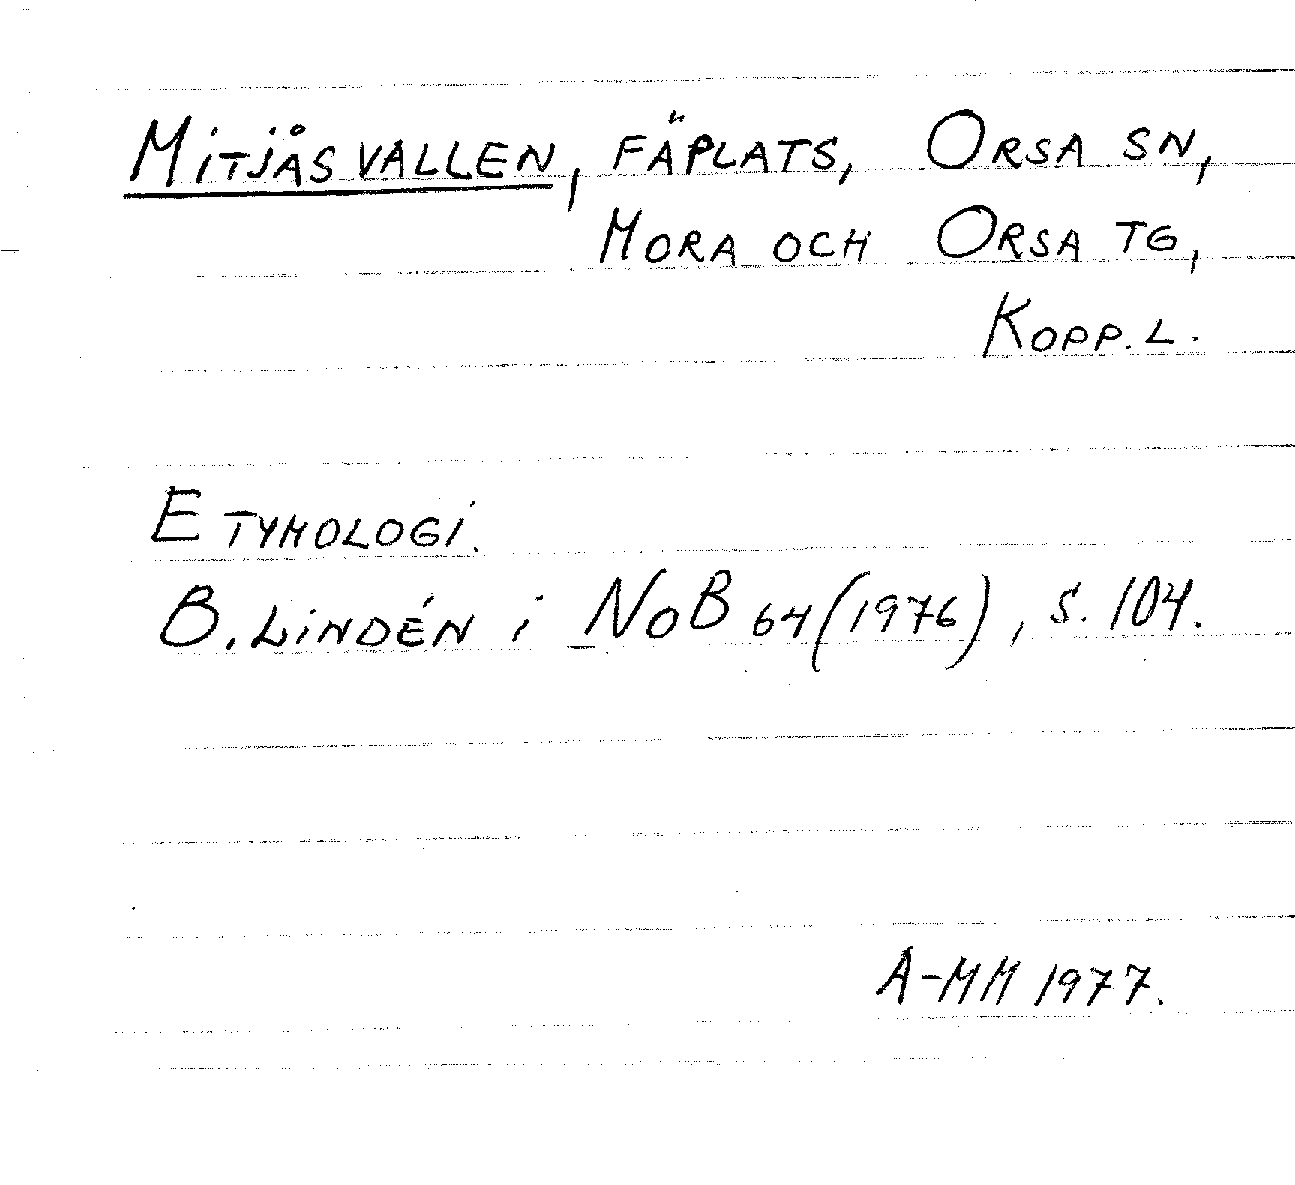 MITJÅSVALLEN, FÄPLATS, ORSA SN,
MORA OCH ORSA TG,
KOPP. L.
ETYMOLOGI.
B. LINDÉN i NoB 64 (1976), S. 104.
A-MM 1977.